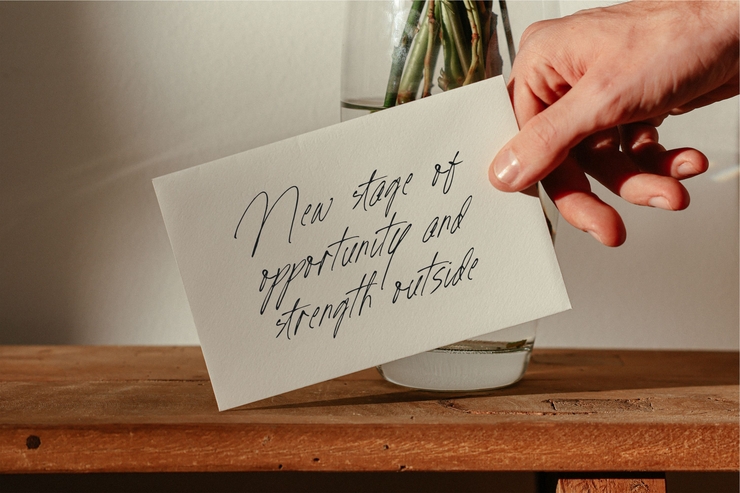 New stage of
opportunity and
strength outside